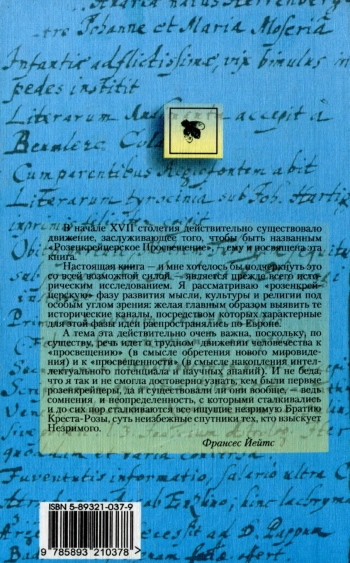 tre Johanne et Maria Moseria
Infantia adflictissimæ, vix bimulus in
pedes institit
Literarum accepit à
Cum parentibus
Literarum tyrocinia sub Joh.
В начале XVII столетия действительно существовало
движение, заслуживающее того, чтобы быть названным
«Розенкрейцерское Просвещение», – ему и посвящена эта
книга.
Настоящая книга – и мне хотелось бы подчеркнуть это
со всей возможной силой, – является прежде всего исто-
рическим исследованием. Я рассматриваю «розенкрей-
церскую» фазу развития мысли, культуры и религии под
особым углом зрения: желая главным образом выявить те
исторические каналы, посредством которых характерные
для этой фазы идеи распространялись по Европе.
А тема эта действительно очень важна, поскольку, по
существу, речь идет о трудном движении человечества к
«просвещению» (в смысле обретения нового мировиде-
ния) и к «просвещенности» (в смысле накопления интел-
лектуального потенциала и научных знаний). И не беда,
что я так и не смогла достоверно узнать, кем были первые
розенкрейцеры, да и существовали ли они вообще, – ведь
сомнения и неопределенность, с которыми сталкивались
и до сих пор сталкиваются все ищущие незримую Братию
Креста-Розы, суть неизбежные спутники тех, кто взыскует
Незримого.
Франсес Йейтс
Fuventutis informatio, Salario ultra
ISBN 5-89321-037-9
9 785893 210378 >